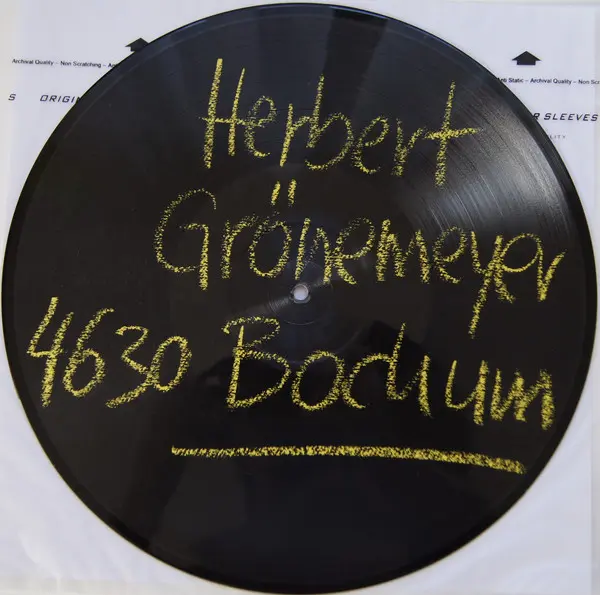 Archival Quality – Non Scratching –
Anti Static – Archival Quality – Non
S ORIGIN
SLEEVES
Herbert
Grönemeyer
4630 Bochum